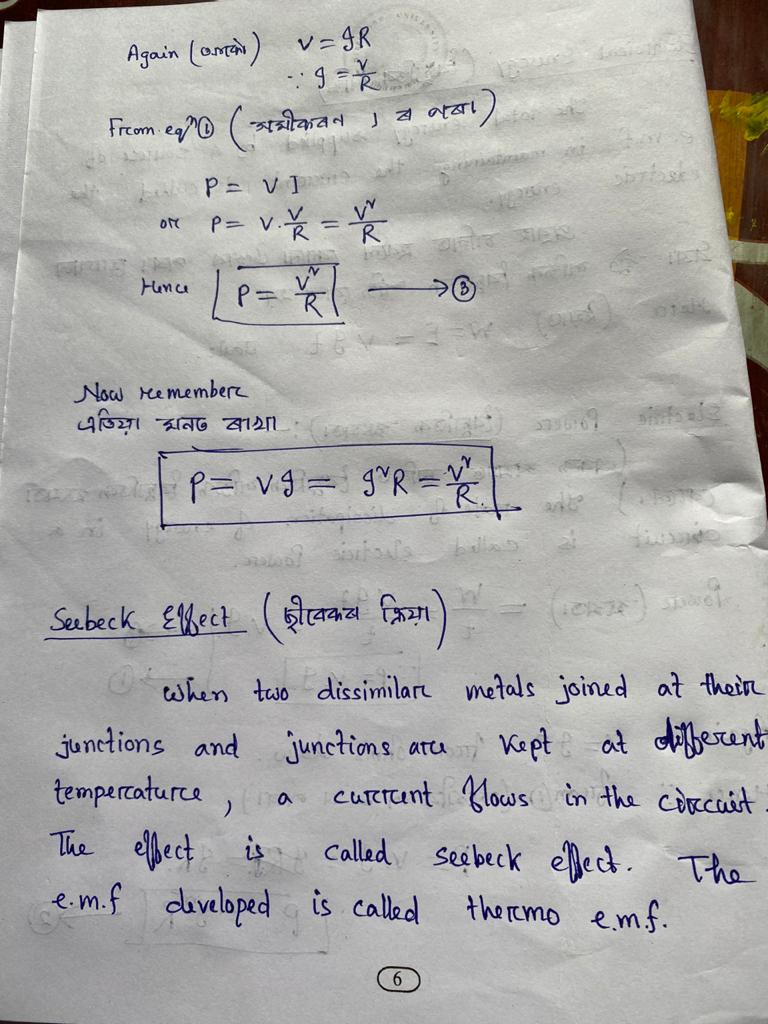 Again (আকৌ) V = IR
∵ I = V/R
From eqⁿ ① (সমীকৰণ 1 ৰ পৰা)
P = VI
or P = V.V/R = V²/R
Hence P = V²/R ⟶ ③
Now remember
এতিয়া মনত ৰাখা
P = VI = I²R = V²/R
Seebeck Effect (ছীবেকৰ ক্ৰিয়া)
When two dissimilar metals joined at their
junctions and junctions are kept at different
temperature, a current flows in the circuit.
The effect is called seebeck effect. The
e.m.f developed is called thermo e.m.f.
6